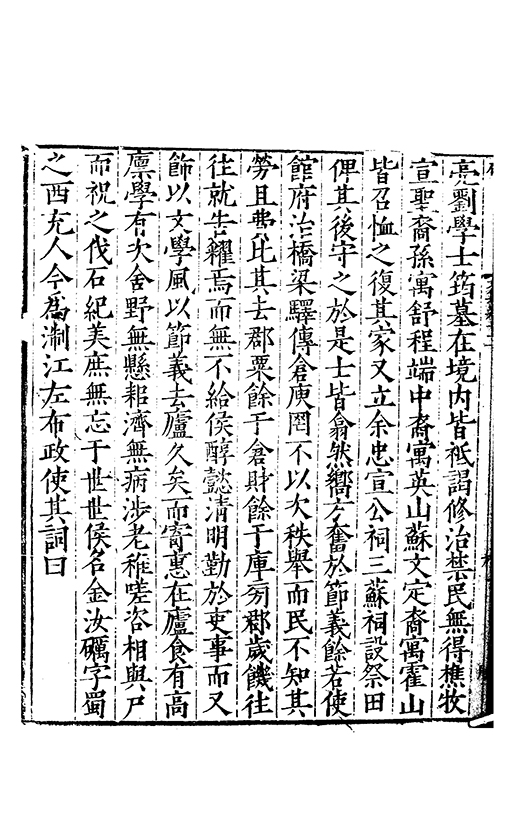 亮劉學士筠墓在境内皆祗謁修治禁民無得樵牧
宣聖裔孫寓舒程端中裔寓英山蘇文定裔寓霍山
皆召恤之復其家又立余忠宣公祠三蘇祠設祭田
俾其後守之於是士皆翕然嚮方奮於節義餘若使
館府治橋梁驛傳倉庾罔不以次秩舉而民不知其
勞且費比其去郡粟餘于倉財餘于庫旁郡歲饑往
徃就告糴焉而無不給侯醇懿清明勤於吏事而又
飾以文學風以節義去廬久矣而寄惠在廬食有高
廪學有次舍野無懸耜濟無病涉老稚嗟咨相與尸
而祝之伐石紀美庶無忘于世世侯名金汝礪字蜀
之西充人今為淛江左布政使其詞曰